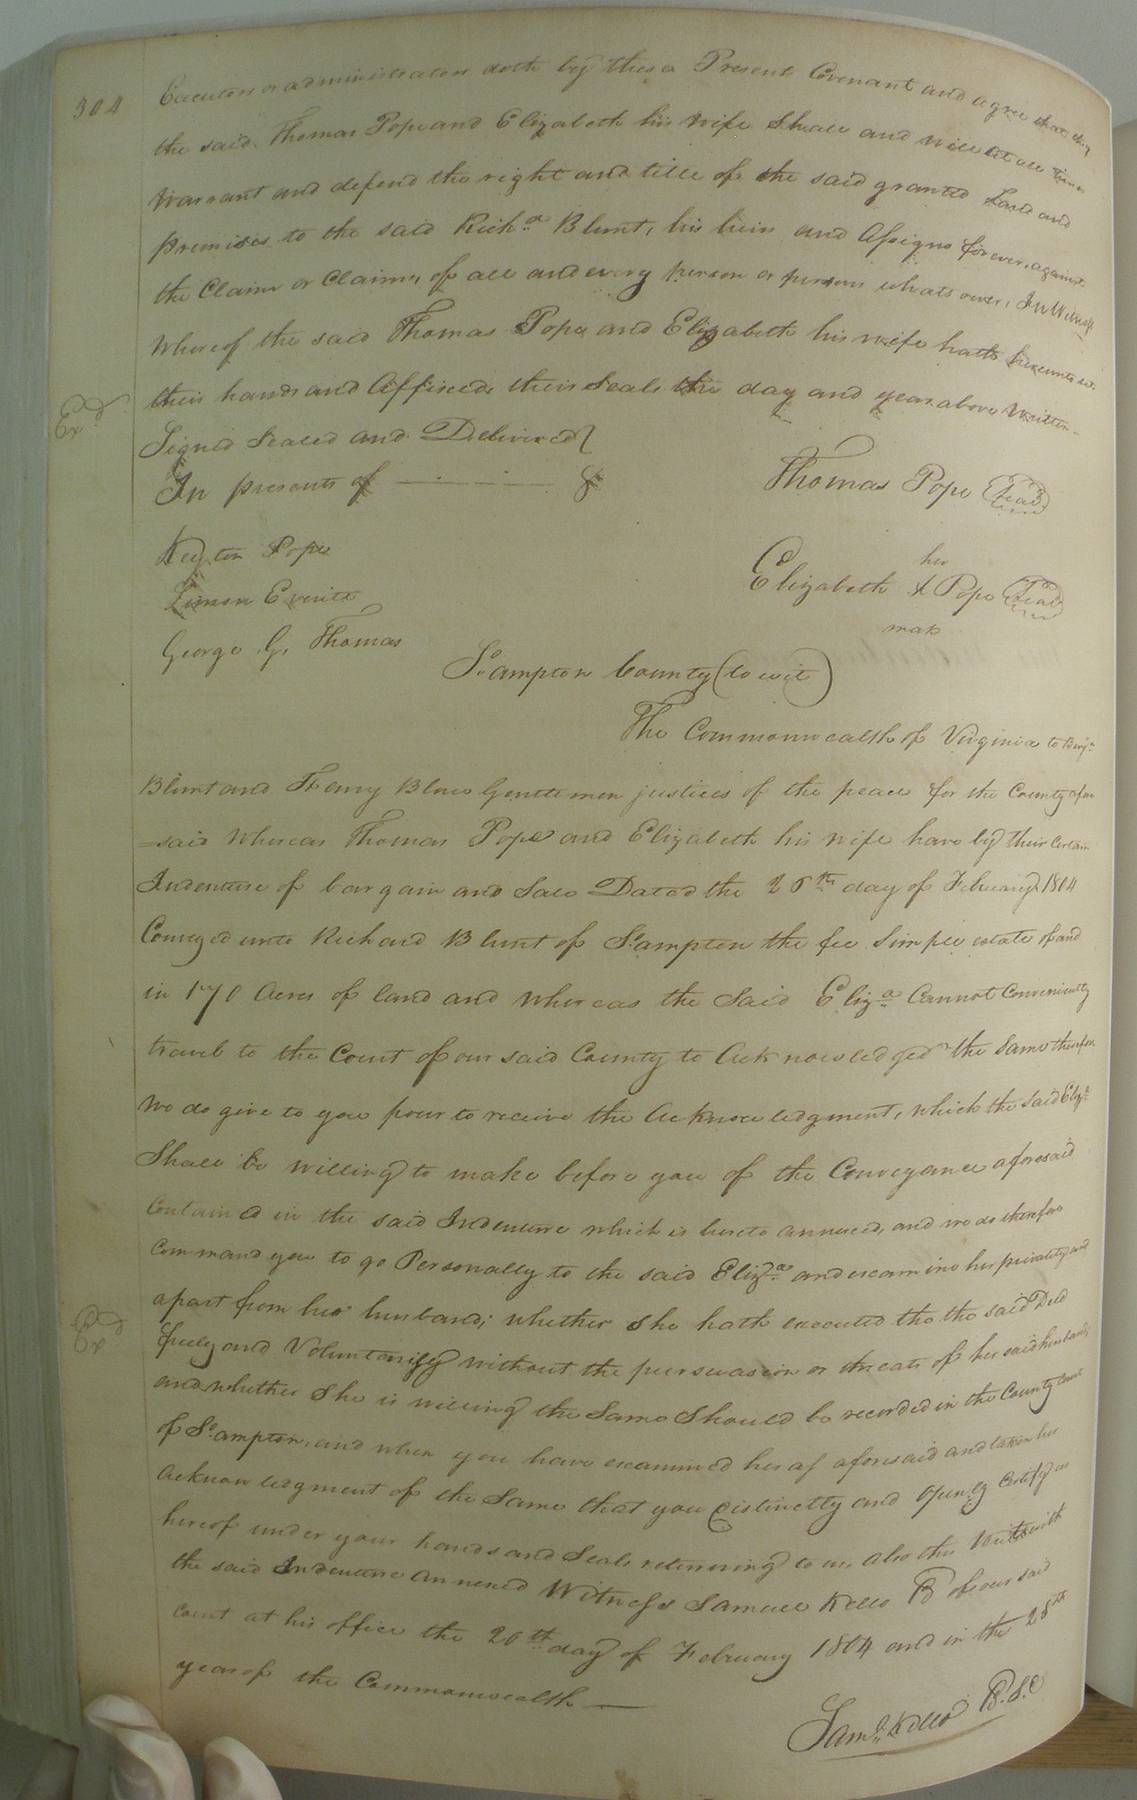 304
Executors or administrators doth by these Presents Covenant and agree that they
the said Thomas Pope and Elizabeth his wife Shall and will at all times
Warrant and defend the right and title of the said granted Land and
premises to the said Richd Blunt, his heirs and Assigns forever, against
the Claim or Claims, of all and every person or persons whatsoever, In Witness
Whereof the said Thomas Pope and Elizabeth his wife hath hereunto set
their hands and Affixed their Seals the day and year above Written
Exd
Signed Sealed and Delivered
In presents of
Thomas Pope Seal
Simon Everitt
George G. Thomas
her
Elizabeth X Pope Seal
mark
So.ampton County (to wit)
The Commonwealth of Virginia to Benjn
Blunt and Henry Blow Gentlemen justices of the peace for the County afore
=said Whereas Thomas Pope and Elizabeth his wife have by their Certain
Indenture of bargain and Sale Dated the 26th day of February 1804
Conveyed unto Richard Blunt of So.ampton the fee Simple estate of and
in 170 Acres of land and whereas the Said Eliza Cannot Conveniently
travel to the Court of our said County to Acknowledged the Same therefore
We do give to you powr to receive the Acknowledgment, which the said Eliza
Shall be willing to make before you of the Conveyance aforesaid
Contained in the said Indenture which is hereto annexed, and we do therefore
Command you to go Personally to the said Eliza and examine her privately and
apart from her husband; whether she hath executed the the said Deed
Exd
freely and Voluntarily without the perswasion or threats of her said husband,
and whether She is willing the Same Should be recorded in the County Court
of So.ampton, and when you have examined her as aforesaid and taken her
Acknowledgment of the Same that you distinctly and openly Certify us
hereof under your hands and Seals returning to us, also this Writ with
the said Indenture annexed Witness Samuel Kello of our said
court at his office the 26th day of February 1804 and in the 28th
year of the Commonwealth
Saml Kello